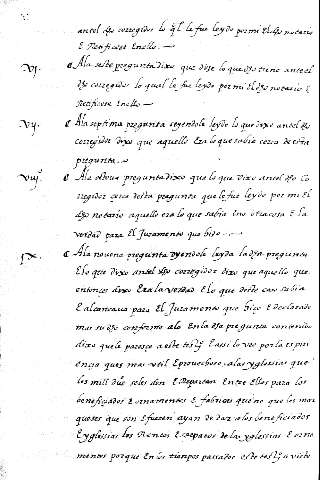 antel dho corregidor lo ql le fue leydo por mi El dho notario
E Retificose Enello. —
vj. C Ala seste pregunta dixo que dize lo que dho tiene ante el
dho corregidor lo qual le fue leydo por mi El dho notario E
Retificose Enello —
vij. C Ala septima pregunta seyendole leydo lo que dixo antel dho
corregidor dixo que aquello Era lo que sabia cerca de esta
pregunta. —
viij C Ala otava pregunta dixo que lo que dixo antel dho Co
rregidor cerca desta pregunta que le fue leydo por mi El
dho notario aquello era lo que sabia E no otra cosa E la
verdad para El Juramento que hizo —
ix. C Ala novena pregunta syendole leyda la dha pregunta
E lo que dixo antel dho corregidor dixo que aquello que
entonces dixo Era la verdad E lo que deste caso sabia
E alcançava para El Juramento que hizo E declarando
mas su dho conforme a lo En la dha pregunta contenido
dixo que le paresce a este tso E assi lo vee por la espiri
ençia ques mas util E provechoso a las yglesias que
los mill dus se les den E Repartan Entre Ellos para los
beneficiados E ornamentos E fabricas que no que los mar
queses que son E fueren ayan de dar a los beneficiados
E yglesias los Renta E Reparos de las yglesias E orna
mentos porque En los tiempos pasados este tso a visto